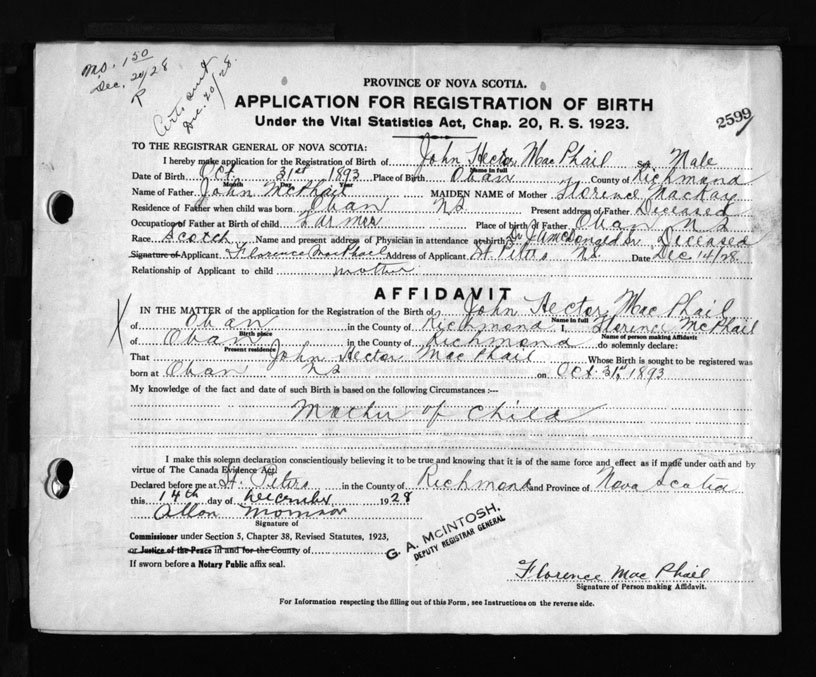 No. 1 50
Dec. 20/28
R
Certs sent
Dec. 20/28.
PROVINCE OF NOVA SCOTIA.
APPLICATION FOR REGISTRATION OF BIRTH
Under the Vital Statistics Act, Chap. 20, R. S. 1923.
2599
TO THE REGISTRAR GENERAL OF NOVA SCOTIA:
I hereby make application for the Registration of Birth of John Hector MacPhail Sex Male
Name in full
Date of Birth Oct 31st 1893 Place of Birth Oban County of Richmond
Month Day Year
Name of Father John McPhail MAIDEN NAME of Mother Florence MacKay
Residence of Father when child was born Oban NS Present address of Father Deceased
Occupation of Father at Birth of child Farmer Place of birth of Father Oban NS
Race Scotch Name and present address of Physician in attendance at birth Dr Deceased
Signature of Applicant Florence MacPhail Address of Applicant St Peters NS Date Dec 14/28
Relationship of Applicant to child mother
AFFIDAVIT
X
IN THE MATTER of the application for the Registration of the Birth of John Hector MacPhail
Name in full
of Oban in the County of Richmond I, Florence McPhail
Birth place Name of person making Affidavit
of Oban in the County of Richmond do solemnly declare:
Present residence
That John Hector MacPhail Whose Birth is sought to be registered was
born at Oban NS on Oct 31st 1893
My knowledge of the fact and date of such Birth is based on the following Circumstances :—
Mother of Child
I make this solemn declaration conscientiously believing it to be true and knowing that it is of the same force and effect as if made under oath and by
virtue of The Canada Evidence Act.
Declared before me at St. Peters in the County of Richmond and Province of Nova Scotia
this 14th day of December 1928
Allan Morrison
Signature of
Commissioner under Section 3, Chapter 38, Revised Statutes, 1923,
or Justice of the Peace in and for the County of
If sworn before a Notary Public affix seal.
G. A. McINTOSH,
DEPUTY REGISTRAR GENERAL
Florence MacPhail
Signature of Person making Affidavit.
For Information respecting the filling out of this Form, see Instructions on the reverse side.